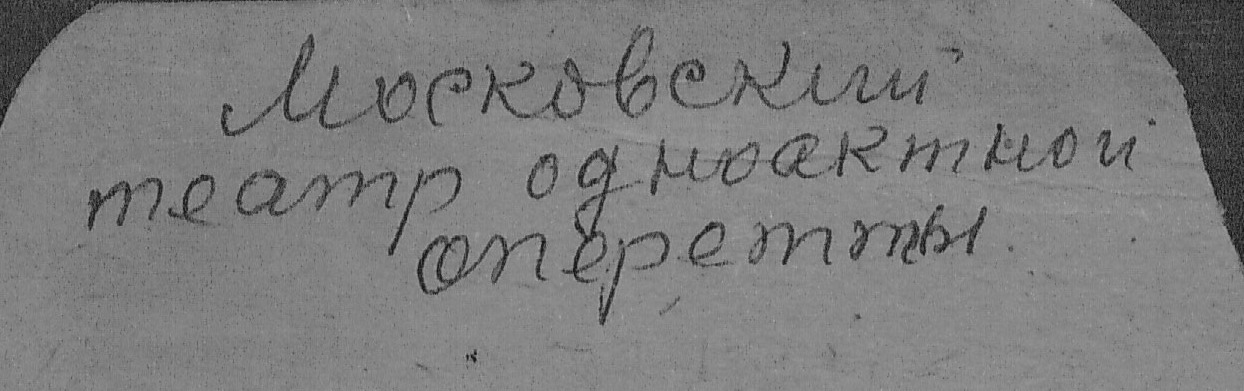 Московский
театр одноактной
оперетты.